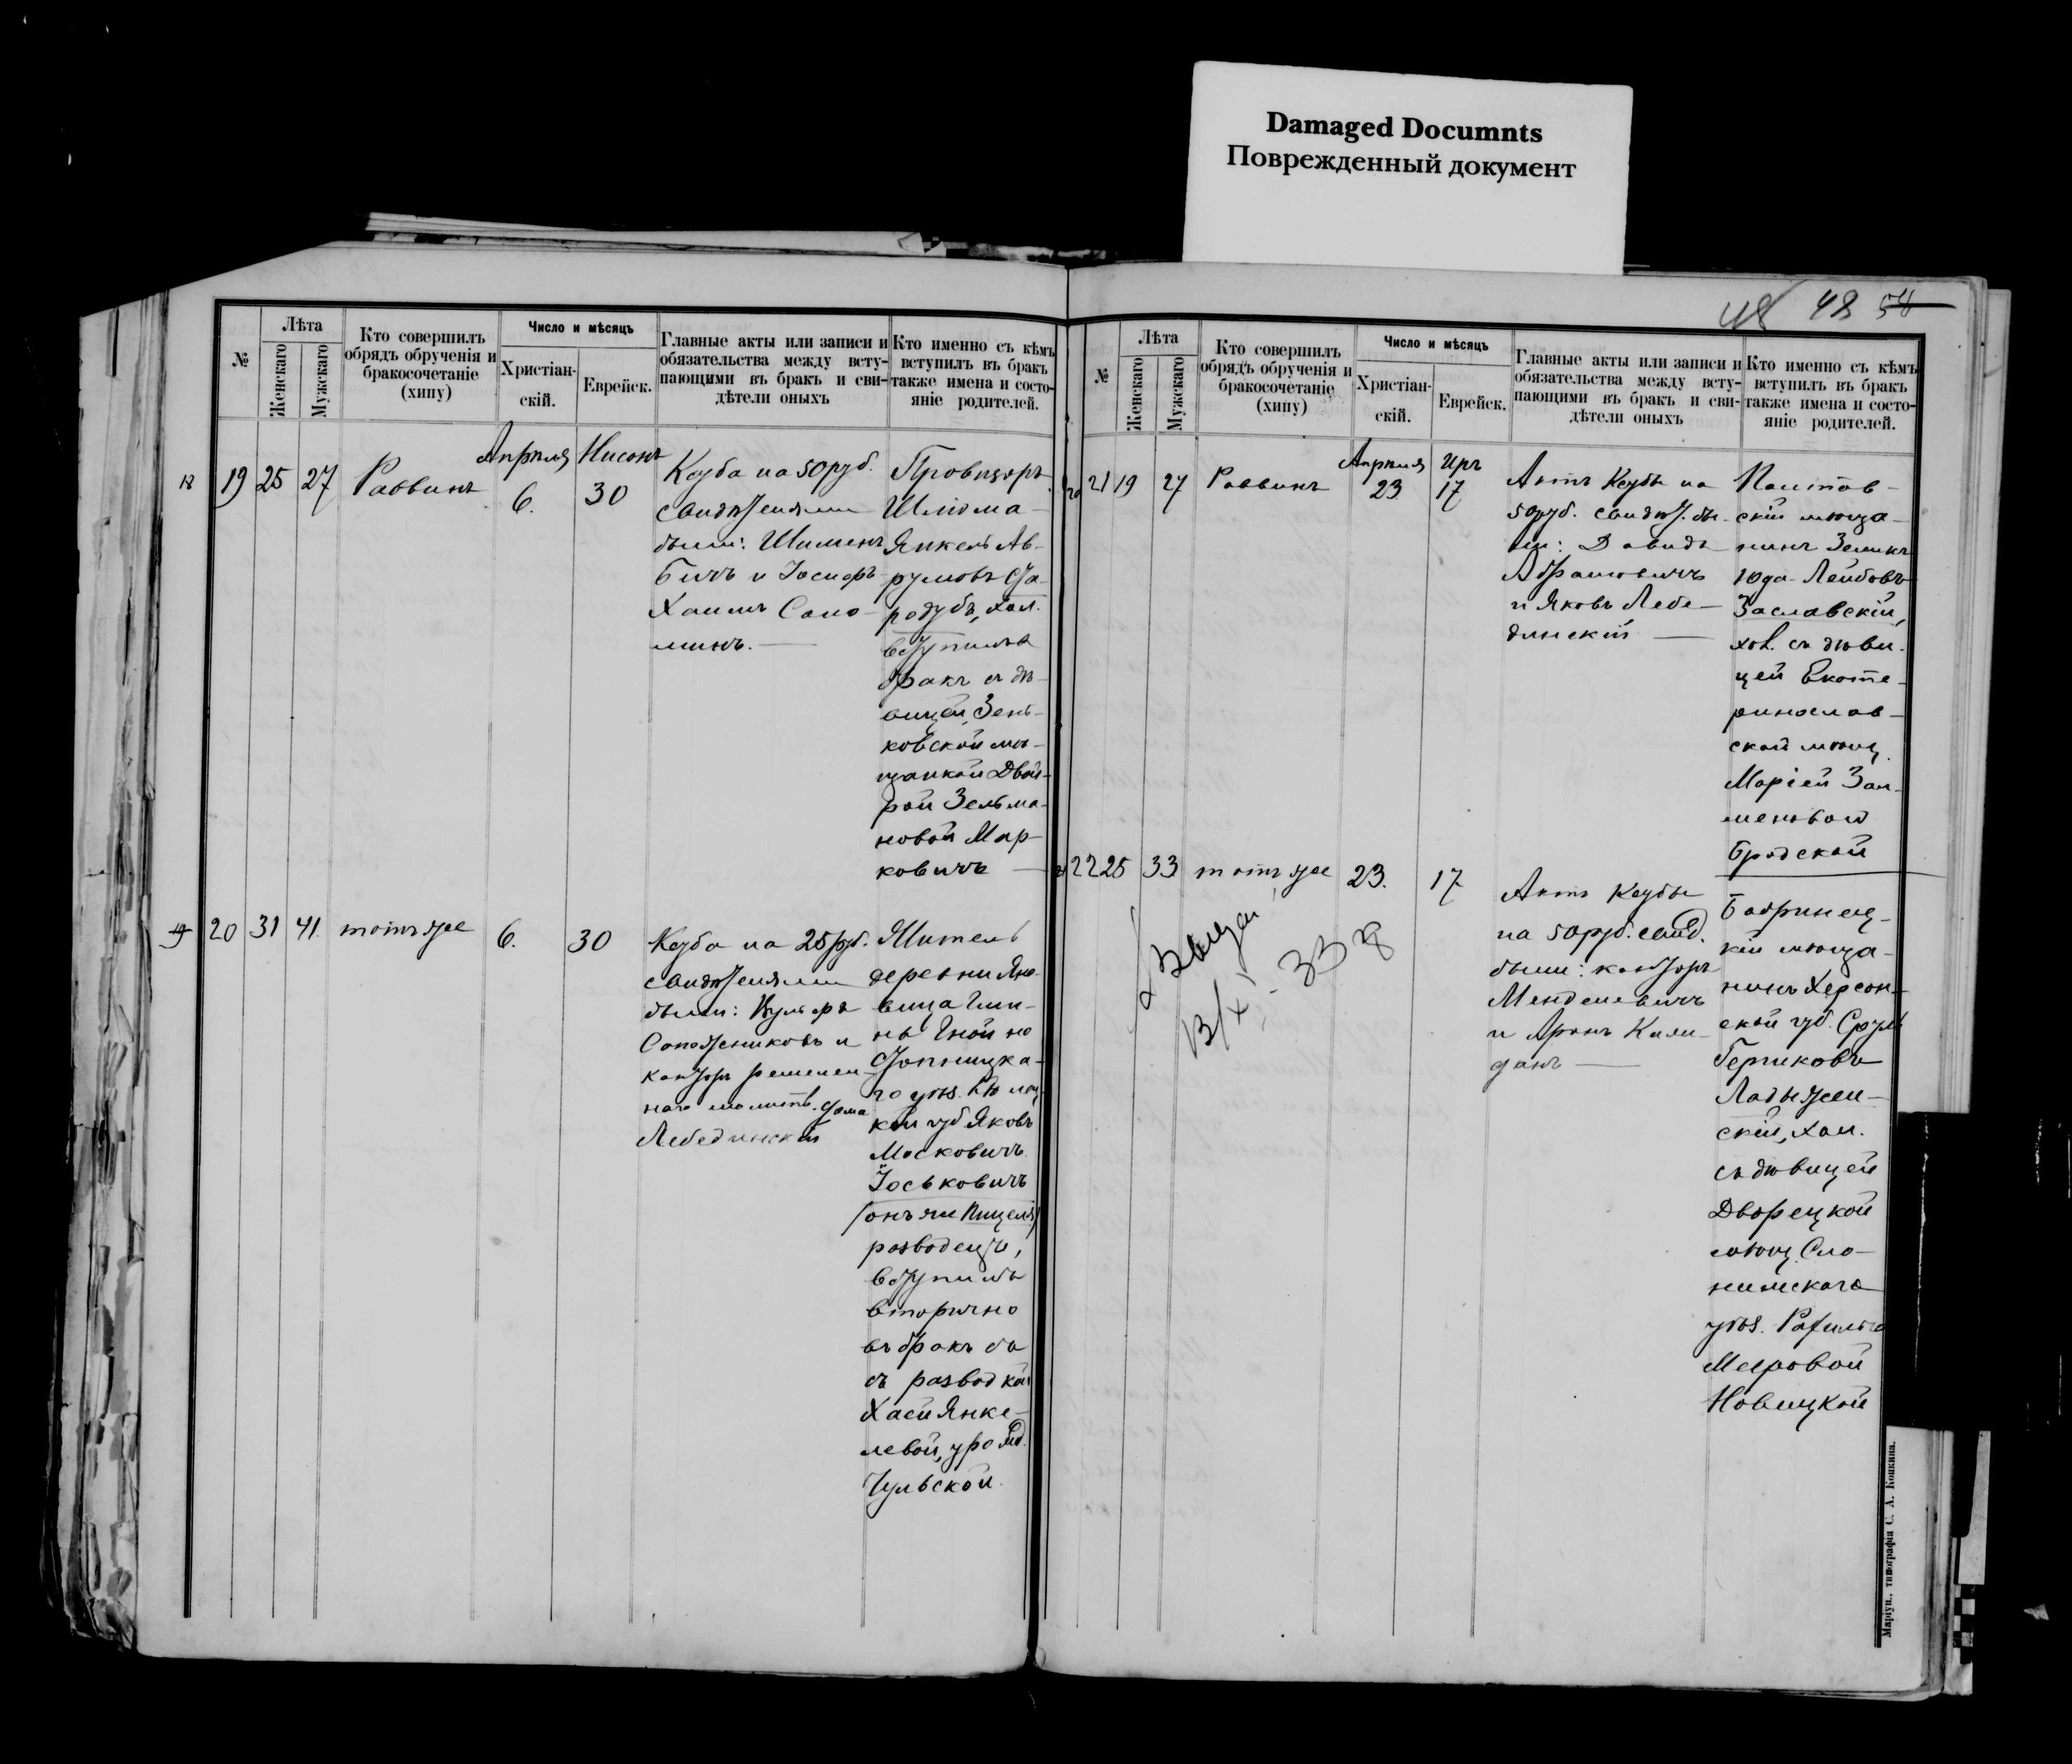 Damaged Documnts
Поврежденный документ
48 48 54
№
Лѣта
Женскаго
Мужскаго
Кто совершилъ
обрядъ обрученія и
бракосочетаніе
(хипу)
Число и мѣсяцъ
Христіан-
скій.
Еврейск.
Главные акты или записи и
обязательства между всту-
пающими въ бракъ и сви-
дѣтели оныхъ
Кто именно съ кѣмъ
вступилъ въ бракъ
также имена и состо-
яніе родителей.
18
19 25 27 Раввинъ
Апрѣля 6.
Нисонъ 30
Кеуба на 50 руб.
свидѣтелями
были: Шименъ
Бичъ и Іосифъ
Хаимъ Соло-
минъ.
Провизоръ
Шліома-
Янкель Ав-
румовъ Ста-
родубъ, хол.
вступилъ въ
бракъ съ дѣ-
вицей, Зень-
ковской мѣ-
щанкой Двой-
рой Зельма-
новой Мар-
ковичъ
19
20 31 41. тотъ же 6. 30
Кеуба на 25 руб.
свидѣтелями
были: Вульфъ
Сапожниковъ и
Канторъ ремеслен-
наго молитв. дома
Лебединскій
Житель
деревни Яно-
вица
го уѣз.
кой губ Яковъ
Московичъ
Іоськовичъ
(онъ же Пицель)
разводецъ,
вступилъ
вторично
въ бракъ съ
съ разводкой
Хаей Янке-
левой, урожд.
Чульской.
№
Лѣта
Женскаго
Мужскаго
Кто совершилъ
обрядъ обрученія и
бракосочетаніе
(хипу)
Число и мѣсяцъ
Христіан-
скій.
Еврейск.
Главные акты или записи и
обязательства между всту-
пающими въ бракъ и сви-
дѣтели оныхъ
Кто именно съ кѣмъ
вступилъ въ бракъ
также имена и состо-
яніе родителей.
20
21 19 27 Раввинъ
Апрѣля 23
Иръ 17
Актъ Кеубы на
50 руб. свидѣт. бы-
ли: Давидъ
Абрамовичъ
и Яковъ Лебе-
динскій
Полтав-
скій мѣща-
нинъ Зеликъ
Юда-Лейбовъ
Заславскій,
хол. съ дѣви-
цей Екате-
ринослав-
ской мѣщ.
Маріей Зал-
меновой
Бродской
21
22 25 33 тотъ же 23. 17
Актъ Кеубы
на 50 руб. свид.
были: канторъ
Менделевичъ
и Аронъ Кали-
данъ
Бобринец-
кій мѣща-
нинъ Херсон-
ской губ. Сруль
Гершковъ
Ладыжен-
скій, хол.
съ дѣвицей
Дворецкой
мѣщ. Сло-
нимскаго
уѣз. Рафилью
Меировой
Новицкой
13/XI - 33
Маріуп., типографія С. А. Копкина.